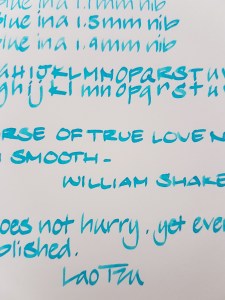 blue in a 1.1mm nib
blue in a 1.5mm nib
blue in a 1.9mm nib
HIJKLMNOPQRSTUV
ghijklmnopqrstu
RSE OF TRUE LOVE N
SMOOTH-
WILLIAM SHAKE
oes not hurry, yet ever
plished.
Lao Tzu